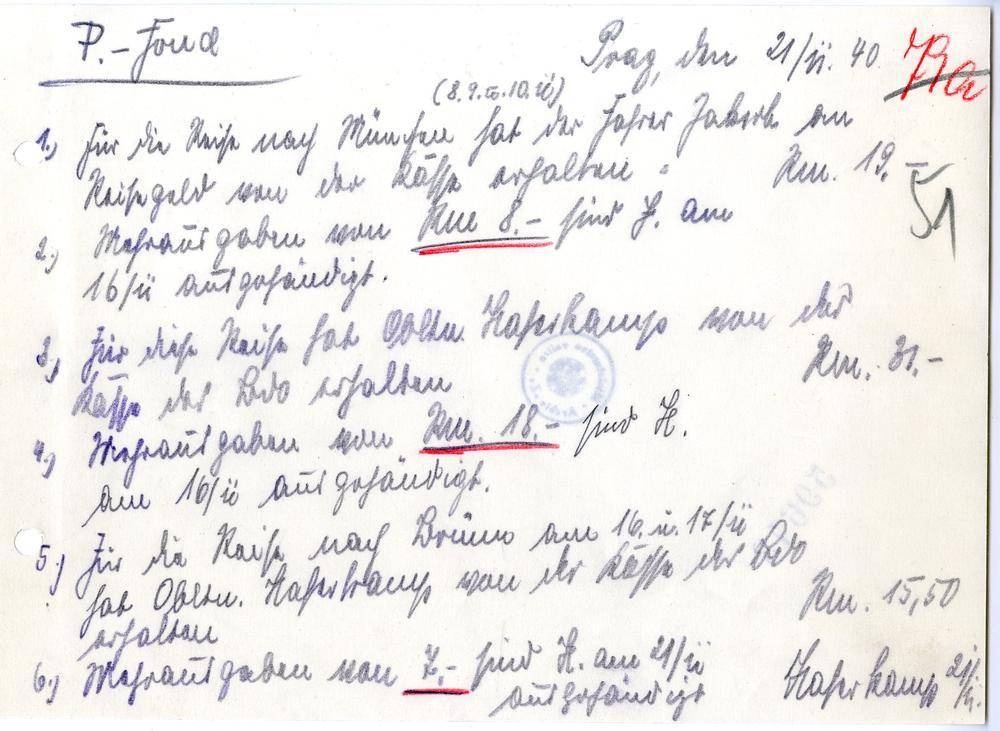 P.-Fond
Prag, den 21/II. 40.
(8. 9. u. 10. II)
1.) Für die Reise nach München hat der Fahrer an
Reisegeld von der Kasse erhalten. Rm. 19.–
51
2.) Mehrausgaben von Rm 8.– sind J. am
16/II ausgehändigt.
3.) Für diese Reise hat Obltn. Haferkamp von der
Kasse des Bdo erhalten Rm. 31.–
4.) Mehrausgaben von Rm. 18.– sind H.
am 16/II ausgehändigt.
5.) Für die Reise nach Brünn am 16. u. 17/II
hat Obltn. Haferkamp von der Kasse des Bdo
erhalten Rm. 15,50
6.) Mehrausgaben von 7.– sind H. am 21/II
ausgehändigt
Haferkamp 21/II.